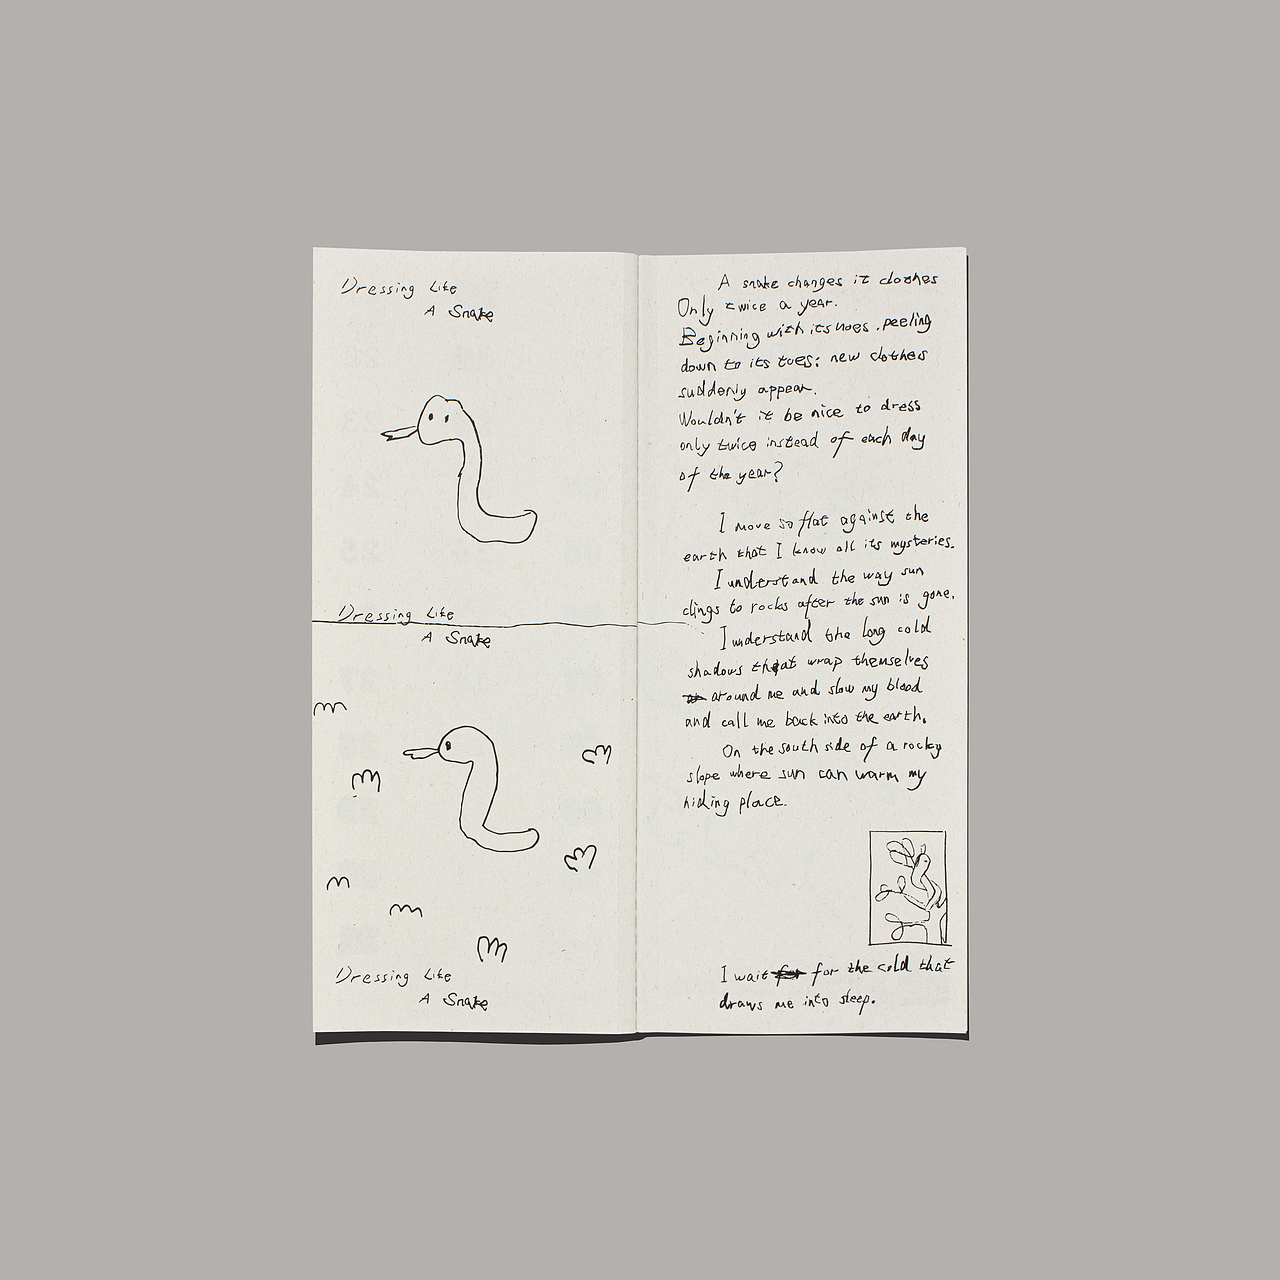 Dressing Like
A Snake
Dressing Like
A Snake
Dressing Like
A Snake
A snake changes it clothes
Only twice a year.
Beginning with its noes .peeling
down to its toes: new clothes
suddenly appear.
Wouldn't it be nice to dress
only twice instead of each day
of the year?
I move so flat against the
earth that I know all its mysteries.
I understand the way sun
clings to rocks after the sun is gone.
I understand the long cold
shadows that wrap themselves
around me and slow my blood
and call me back into the earth.
On the south side of a rocky
slope where sun can warm my
hiding place.
I wait for for the cold that
draws me into sleep.